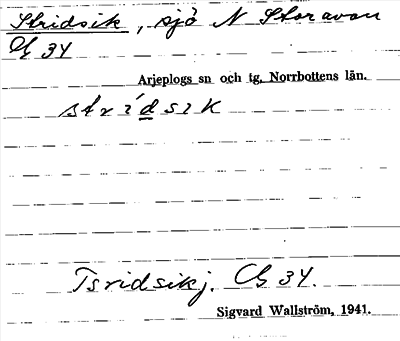 Stridsik, sjö N Storavan
Cg 34
Arjeplogs sn och tg, Norrbottens län.
strídsik
Tsridsikj. Cg 34.
Sigvard Wallström, 1941.